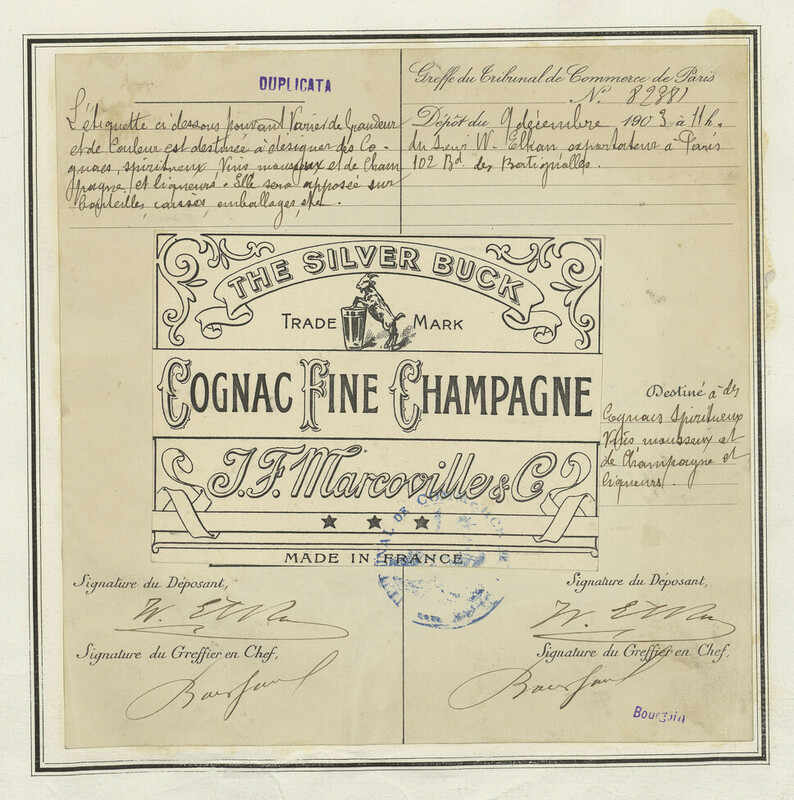 DUPLICATA
L'étiquette ci dessous pouvant Varier de Grandeur
et de Couleur est destinée à désigner des Co-
gnacs, spiritueux, Vins mousseux et de Cham
pagne, et liqueurs. Elle sera apposée sur
bouteilles, caisses, emballages, etc.
Greffe du Tribunal de Commerce de Paris
N° 82381
Dépôt du 9 décembre 1903 à 11 h.
du Sieur W. Elkan exportateur à Paris
102 Bd. des Batignolles
THE SILVER BUCK
TRADE MARK
COGNAC FINE CHAMPAGNE
J.F. Marcoville & Co
MADE IN FRANCE
Destiné à des
Cognacs Spiritueux
Vins mousseux et
de Champagne et
liqueurs.
Signature du Déposant,
W. Elkan
Signature du Greffier en Chef,
Signature du Déposant,
W. Elkan
Signature du Greffier en Chef,
Bourgoin